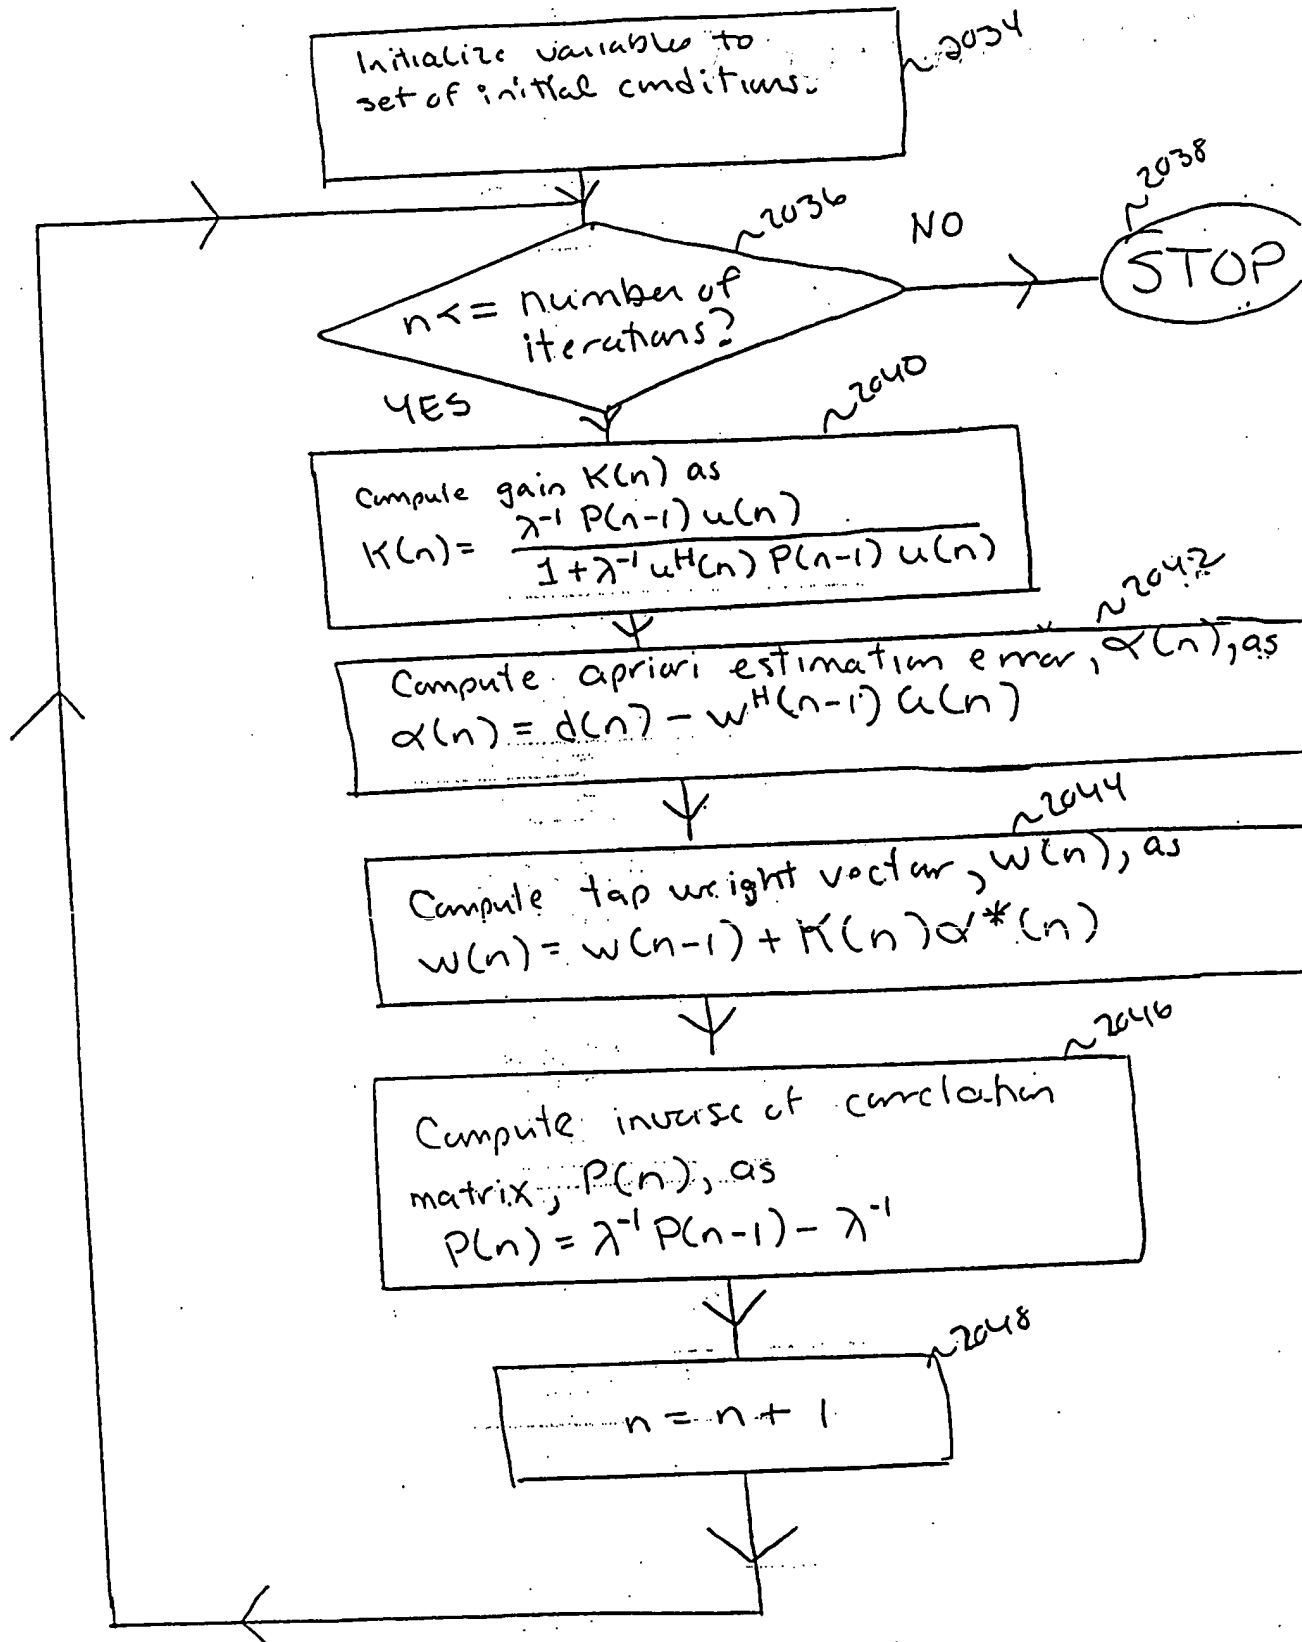 Initialize variables to
set of initial conditions.
~2034
~2036
NO
~2038
STOP
n <= number of
iterations?
YES
~2040
Compute gain K(n) as
K(n) = λ⁻¹ P(n-1) u(n)
1 + λ⁻¹ uᴴ(n) P(n-1) u(n)
~2042
Compute apriori estimation error, α(n), as
α(n) = d(n) - wᴴ(n-1) u(n)
~2044
Compute tap weight vector, w(n), as
w(n) = w(n-1) + K(n) α*(n)
~2046
Compute inverse of correlation
matrix, P(n), as
P(n) = λ⁻¹ P(n-1) - λ⁻¹
~2048
n = n + 1